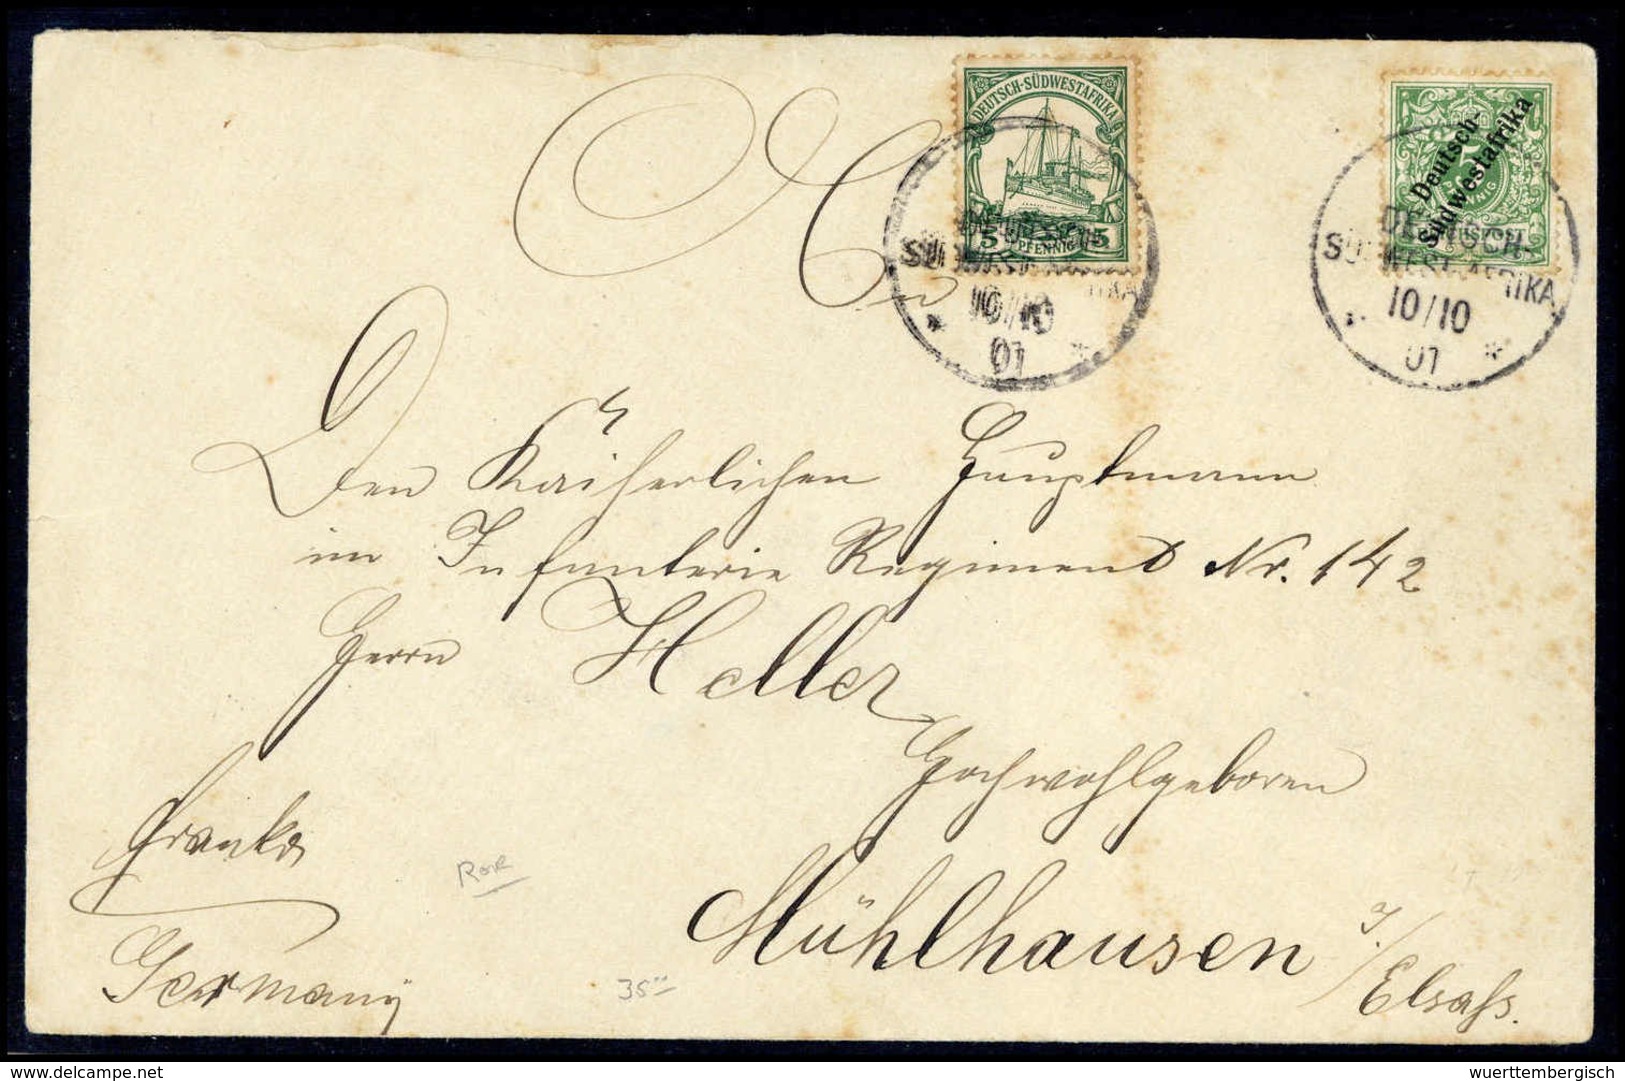 DEUTSCH-SÜDWESTAFRIKA
5 PFENNIG 5
Deutsch-
Südwestafrika
5
PFENNIG
REICHSPOST
10/10
01
DEUTSCH-
SÜDWEST-AFRIKA
10/10
01
An
Den Kaiserlichen Hauptmann
im Infanterie Regiment Nr. 142
Herrn Heller
Hochwohlgeboren
Mühlhausen i/Elsaſs.
Franko
Germany
35
delcampe.net
wuerttembergisch